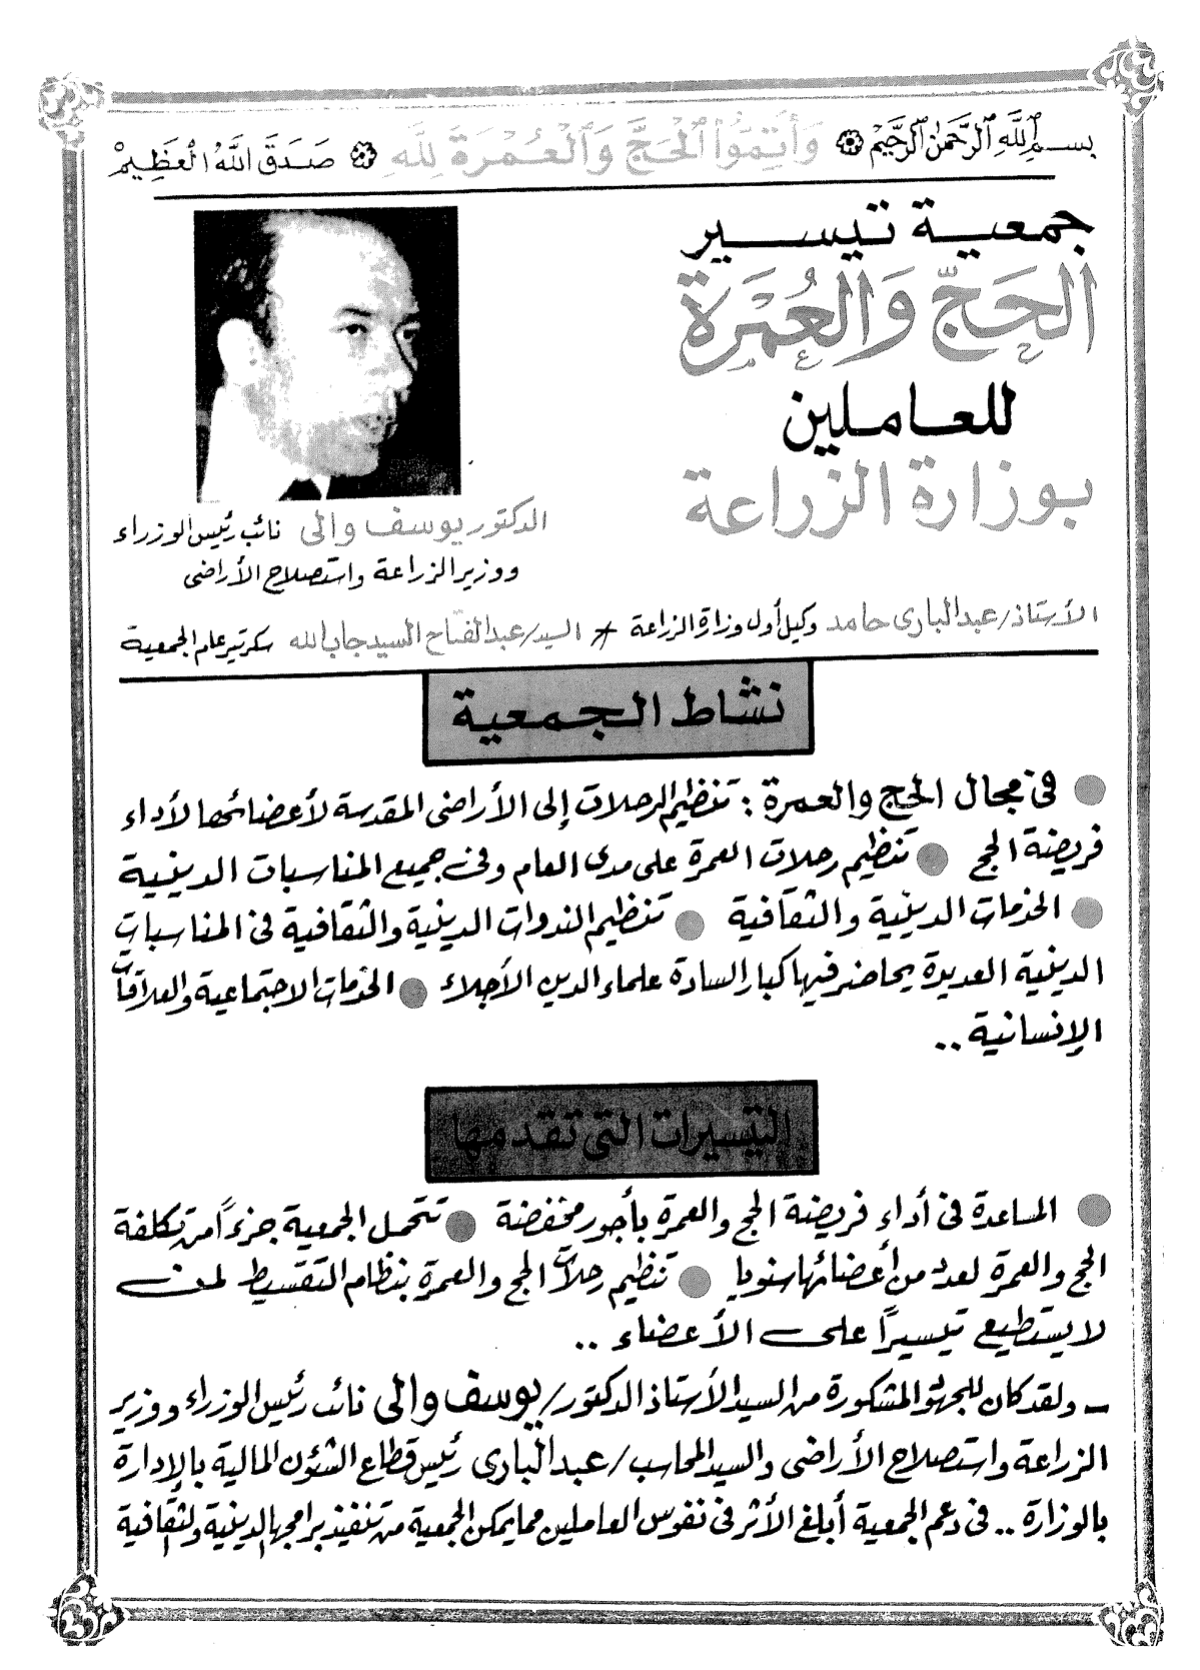 بسم الله الرحمن الرحيم وَأَتِمُّوا الْحَجَّ وَالْعُمْرَةَ لِلَّهِ صَدَقَ اللهُ الْعَظِيمْ
جمعية تيسير
الحَجّ وَالعُمْرَة
للعاملين
بوزارة الزراعة
الدكتور يوسف والى نائب رئيس الوزراء
ووزير الزراعة واستصلاح الأراضى
الأستاذ/عبد البارى حامد وكيل أول وزارة الزراعة * السيد/عبد الفتاح السيد جاب الله سكرتير عام الجمعية
نشاط الجمعية
● فى مجال الحج والعمرة : تنظيم الرحلات إلى الأراضى المقدسة لأعضائها لأداء
فريضة الحج ● تنظيم رحلات العمرة على مدى العام وفى جميع المناسبات الدينية
● الخدمات الدينية والثقافية ● تنظيم الندوات الدينية والثقافية فى المناسبات
الدينية العديدة يحاضر فيها كبار السادة علماء الدين الأجلاء ● الخدمات الاجتماعية والعلاقات
الإنسانية ..
التيسيرات التى تقدمها
● المساعدة فى أداء فريضة الحج والعمرة بأجور مخفضة ● تتحمل الجمعية جزءاً من تكلفة
الحج والعمرة لعدد من أعضائها سنويا ● تنظيم رحلات الحج والعمرة بنظام التقسيط لمن
لا يستطيع تيسيراً على الأعضاء ..
- ولقد كان للجهود المشكورة من السيد الأستاذ الدكتور/يوسف والى نائب رئيس الوزراء ووزير
الزراعة واستصلاح الأراضى والسيد المحاسب/عبد البارى رئيس قطاع الشئون المالية بالإدارة
بالوزارة .. فى دعم الجمعية أبلغ الأثر فى نفوس العاملين مما يمكن الجمعية من تنفيذ برامجها الدينية والثقافية